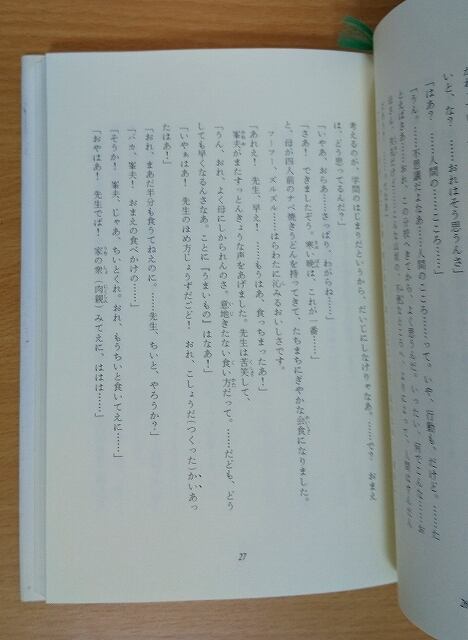 いと、な？　……おれはそう思うんさ」
「はあ？　……人間の……こころ……」
「うん。……不思議だよなあ……人間のこころ……って。いや、行動も、だけど。……だ
考えるのが、学問のはじまりだというから、だいじにしなけりゃなあ。……で？　おまえ
は、どう思ってるんだ？」
「いやあ、おらあ……さっぱり、わがらね……」
「さあ！　できましたぞう。寒い晩は、これが一番……」
と、母が四人前のナベ焼きうどんを持ってきて、たちまちにぎやかな会食になりました。
フーフー、ズルズル……はらわたに沁みるおいしさです。
「あれえ！　先生、早え！　……もうはあ、食っちまったあ！」
峯夫がまたすっとんきょうな声をあげました。先生は苦笑して、
「うん、おれ、よく母にしかられんのさ。意地きたない食い方だって。……だども、どう
しても早くなるんさなあ。ことに『うまいもの』はなあ！」
「いやぁはあ！　先生のほめ方じょうずだごど！　おれ、こしょうだ（つくった）かいあっ
たはあ！」
「おれ、まあだ半分も食うてねえのに。……先生、ちいと、やろうか？」
「バカ、峯夫。おまえの食べかけの……」
「そうか！　峯夫、じゃあ、ちいとくれ。おれ、もうちいと食いてえに……」
「おやはあ！　先生でば！　家の衆（肉親）みてえに、ははは……」
27